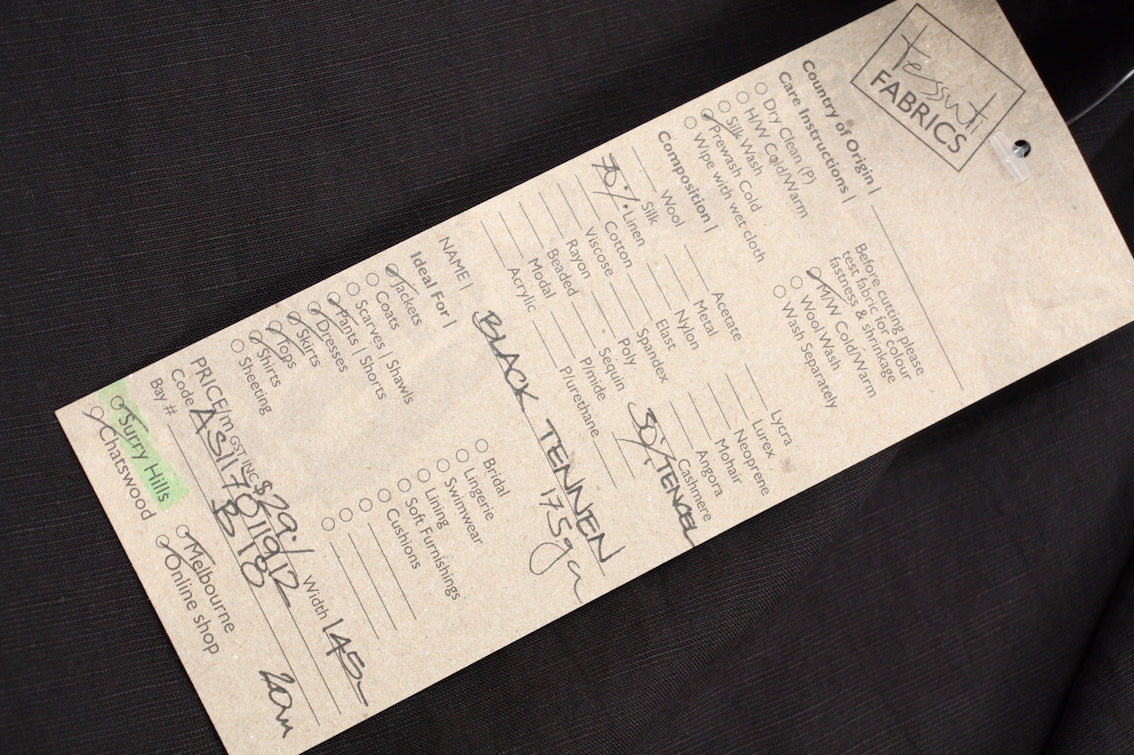 tessuti
FABRICS
Country of Origin |
Care Instructions |
Dry Clean (P)
H/W Cold/Warm
Silk Wash
Prewash Cold
Wipe with wet cloth
Before cutting please
test fabric for colour
fastness & shrinkage
M/W Cold/Warm
Wool Wash
Wash Separately
Composition |
Wool
Silk
70% Linen
Cotton
Viscose
Rayon
Beaded
Modal
Acrylic
Acetate
Metal
Nylon
Elast
Spandex
Poly
Sequin
P/mide
P/urethane
Lycra
Lurex
Neoprene
Mohair
Angora
Cashmere
30% TENCEL
NAME | BLACK TENNEN
175g
Ideal For |
Jackets
Coats
Scarves | Shawls
Pants | Shorts
Dresses
Skirts
Tops
Shirts
Sheeting
Bridal
Lingerie
Swimwear
Lining
Soft Furnishings
Cushions
PRICE/m GST INC $29./ Width 145
Code
Bay # B 10
20m
Surry Hills
Chatswood
Melbourne
Online shop